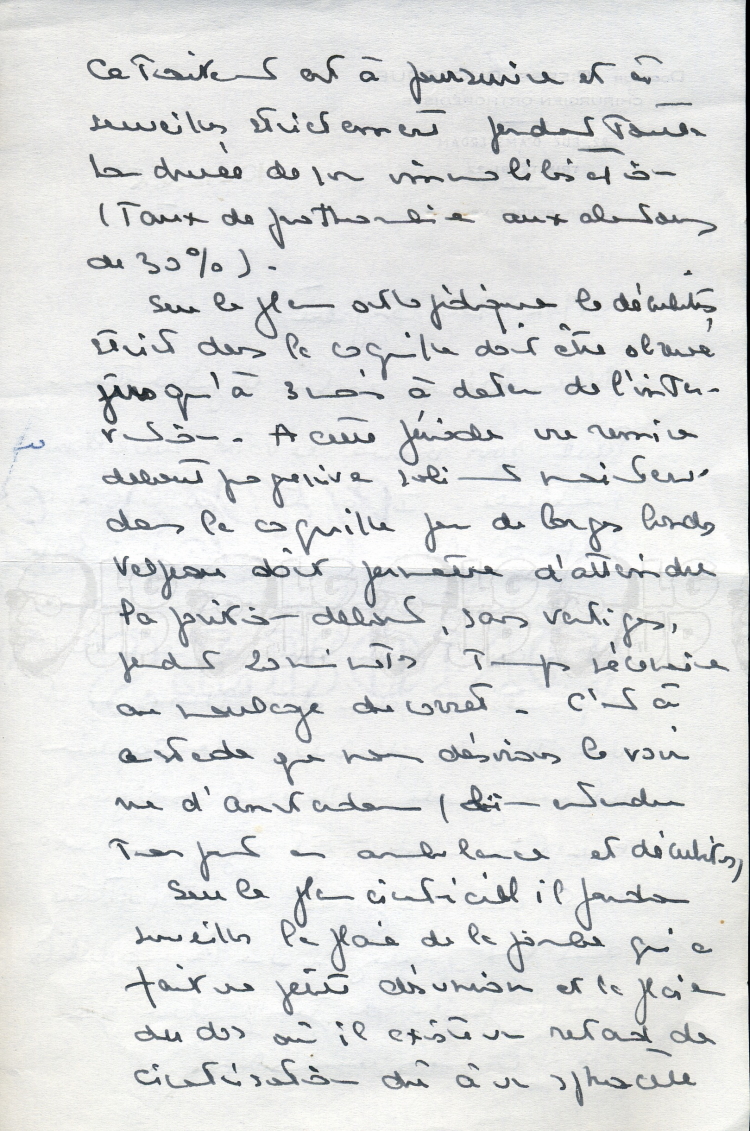 Ce Traitement est à poursuivre et à
surveiller strictement pendant Toute
la durée de son immobilisation
(Taux de prothombine aux alentours
de 30%).
Sur le plan orthopédique le décubitus
strict dans la coquille doit être observé
jusqu'à 3 mois à dater de l'inter-
vention. A cette période une remise
debout progressive solidement maintenu
dans la coquille par de larges bandes
Velpeau doit permettre d'atteindre
la position debout, sans vertiges,
pendant 20 minutes Temps nécessaire
au moulage du corset. C'est à
ce stade que nous désirons le voir
rue d'Amsterdam (bien entendu
Transport en ambulance et décubitus)
Sur le plan cicatriciel il faudra
surveiller la plaie de la jambe qui a
fait une petite désunion et la plaie
du dos où il existe un retard de
cicatrisation dû à un sphacèle